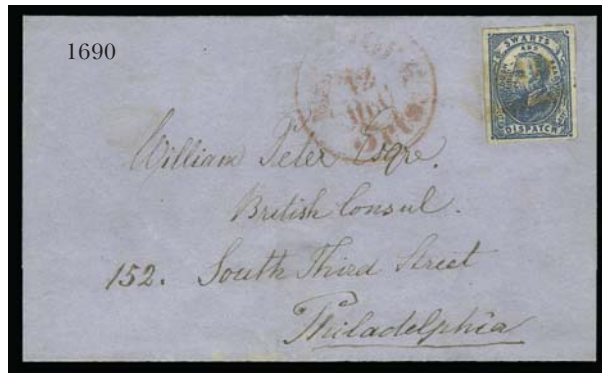 1690
SWARTS
AND
DISPATCH
12
5 cts.
William Peter Esqre.
British Consul.
152. South Third Street
Philadelphia